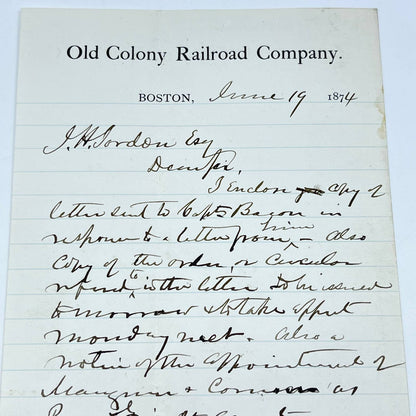 Old Colony Railroad Company.
BOSTON, June 19 1874
J. H. Gordon Esq
Dear Sir,
I Enclose copy of
letter sent to Capt Bacon in
response to a letter from him – also
copy of the order, or Circular
referd to in the letter to be issued
tomorrow & to take effect
monday next. Also a
notice of the appointment of
as